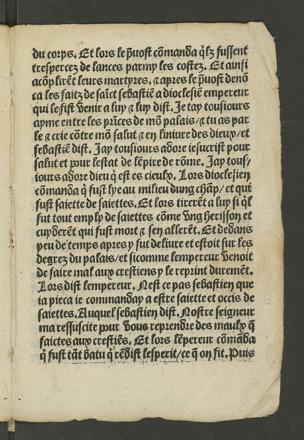 du corps, Et lors le p̃uost cõmanda q̃lz fussent
trespercez de lances parmy les costez. Et ainsi
acõplirẽt leurs martyres. ⁊ apres le p̃uost denõ
ca les faitz de saĩct sebastiẽ a dioclesiẽ empereur
qui le fist venir a luy ⁊ luy dist. Je tay tousiours
ayme entre les prĩces de mõ palais / ⁊ tu as par
le ⁊ crie cõtre mõ salut ⁊ en liniure des dieux / et
sebastiẽ dist. Jay tousiours adore iesucrist pour
salut et pour lestat de lẽpire de rõme. Jay tous/
iours adore dieu q̃ est es cieulx. Lors dioclesien
cõmanda q̃ fust lye au milieu dung chãp / et qui
fust saiette de saiettes. Et lors tirerẽt a luy si ql̃
fut tout emply de saiettes cõme vng herisson et
cuyderẽt qui fust mort ⁊ sen allerẽt. Et dedans
peu de temps apres y fut deliure et estoit sur les
degrez du palais / et sicomme lempereur venoit
de faire mal aux crestiens y le reprint duremẽt.
Lors dist lempereur. Nest ce pas sebastien que
ia pieca ie commanday a estre saiette et occis de
saiettes. Auquel sebastien dist. Nostre seigneur
ma ressuscite pour vous reprendre des maulx q̃
faictes aux crestiẽs. Et lors lẽpereur cõmãda
q̃ fust tãt batu q̃ rẽdist lesperit / ce q̃ on fit. Puis